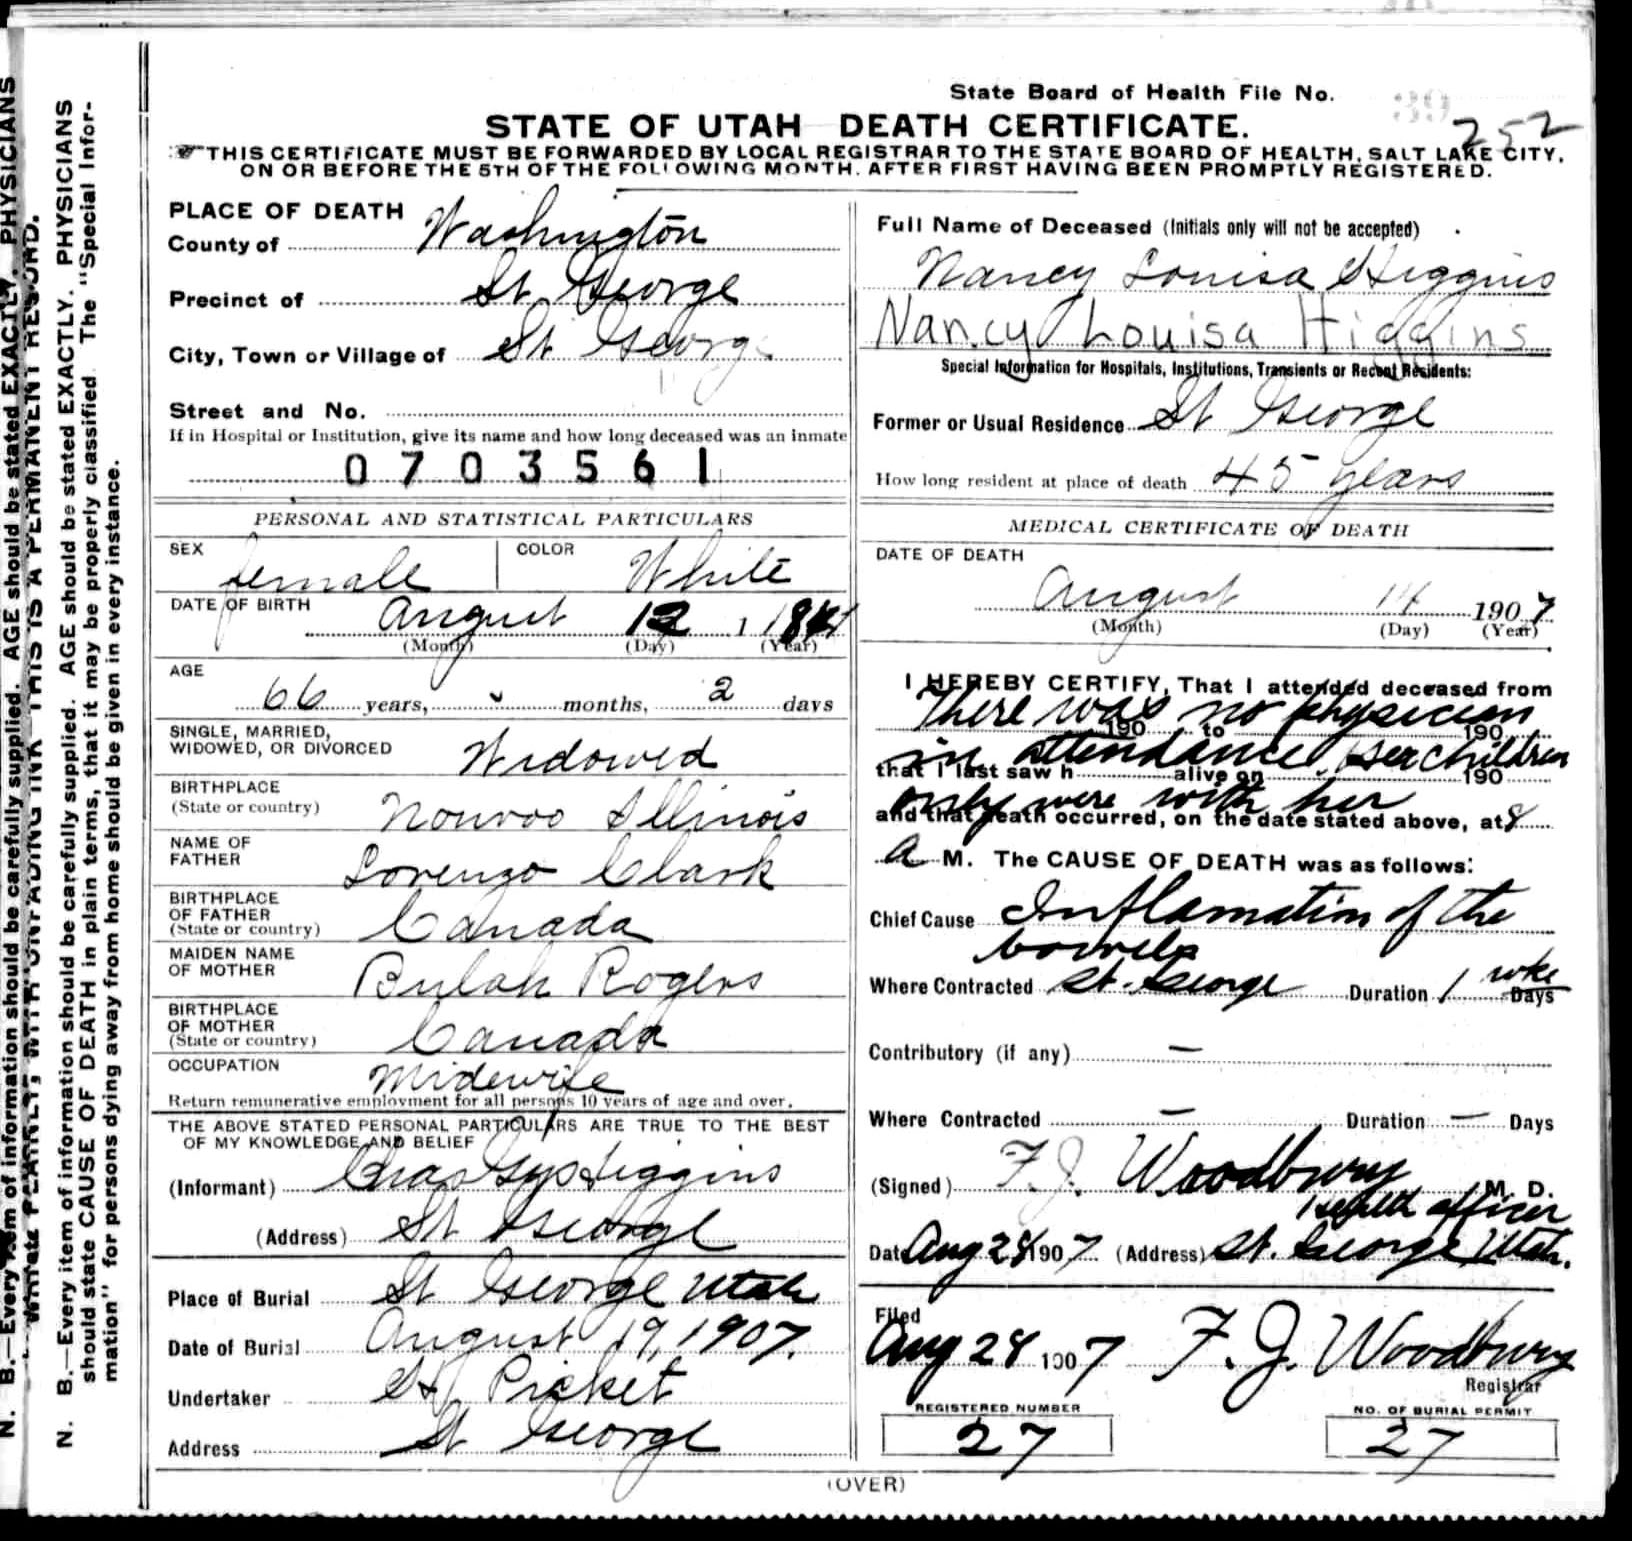 State Board of Health File No.
39 252
STATE OF UTAH DEATH CERTIFICATE.
THIS CERTIFICATE MUST BE FORWARDED BY LOCAL REGISTRAR TO THE STATE BOARD OF HEALTH, SALT LAKE CITY,
ON OR BEFORE THE 5TH OF THE FOLLOWING MONTH. AFTER FIRST HAVING BEEN PROMPTLY REGISTERED.
PLACE OF DEATH
County of Washington
Precinct of St. George
City, Town or Village of St George
Street and No.
If in Hospital or Institution, give its name and how long deceased was an inmate
0703561
PERSONAL AND STATISTICAL PARTICULARS
SEX female COLOR White
DATE OF BIRTH August 12 1
(Month) (Day) (Year)
AGE
66 years, months, 2 days
SINGLE, MARRIED,
WIDOWED, OR DIVORCED Widowed
BIRTHPLACE
(State or country) Nouvoo Illinois
NAME OF
FATHER Lorenzo Clark
BIRTHPLACE
OF FATHER
(State or country) Canada
MAIDEN NAME
OF MOTHER Bulah Rogers
BIRTHPLACE
OF MOTHER
(State or country) Canada
OCCUPATION Midewife
Return remunerative employment for all persons 10 years of age and over.
THE ABOVE STATED PERSONAL PARTICULARS ARE TRUE TO THE BEST
OF MY KNOWLEDGE AND BELIEF
(Informant) Chas Higgins
(Address) St George
Place of Burial St George Utah
Date of Burial August 19, 1907.
Undertaker Picket
Address St George
Full Name of Deceased (Initials only will not be accepted)
Nancy Louisa Higgins
Nancy Louisa Higgins
Special Information for Hospitals, Institutions, Transients or Recent Residents:
Former or Usual Residence St George
How long resident at place of death 45 years
MEDICAL CERTIFICATE OF DEATH
DATE OF DEATH
August 14 1907
(Month) (Day) (Year)
I HEREBY CERTIFY, That I attended deceased from
There was no physician
190 to 190
in attendance her children
that I last saw h alive on 190
only were with her
and that death occurred, on the date stated above, at 8
a M. The CAUSE OF DEATH was as follows:
Chief Cause Inflamation of the
bowels
Where Contracted St. George Duration 1 wke Days
Contributory (if any) —
Where Contracted — Duration — Days
(Signed) F. J. Woodbury M. D.
Health officer
Date Aug 28 1907 (Address) St. George Utah.
Filed
Aug 28 1907 F. J. Woodbury
Registrar
REGISTERED NUMBER
27
NO. OF BURIAL PERMIT
27
(OVER)
N. B.—Every item of information should be carefully supplied. AGE should be stated EXACTLY. PHYSICIANS
should state CAUSE OF DEATH in plain terms, that it may be properly classified. The "Special Infor-
mation" for persons dying away from home should be given in every instance.
N. B.—Every item of information should be carefully supplied. AGE should be stated EXACTLY. PHYSICIANS
WRITE PLAINLY, WITH UNFADING INK—THIS IS A PERMANENT RECORD.